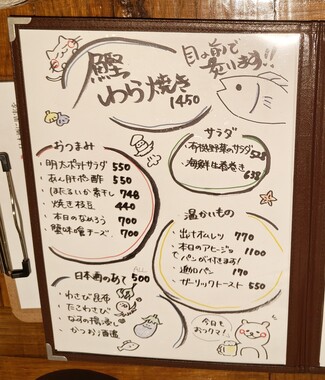 鰹
わら焼き
1450
目の前で
炙ります!!
おつまみ
・明太ポテサラダ 550
・あん肝ポン酢 550
・ほたるいか素干し 748
・焼き枝豆 440
・本日のなめろう 700
・蟹味噌チーズ 700
サラダ
・有機野菜のサラダ 528
・海鮮生春巻き 638
温かいもの
・出汁オムレツ 770
・本日のアヒージョ 1100
パンが付きます!
・追加パン 170
・ガーリックトースト 550
日本酒のあて ALL 500
・わさび昆布
・たこわさび
・なすの揚浸し
・かつお酒盗
今日も
おつクマ!